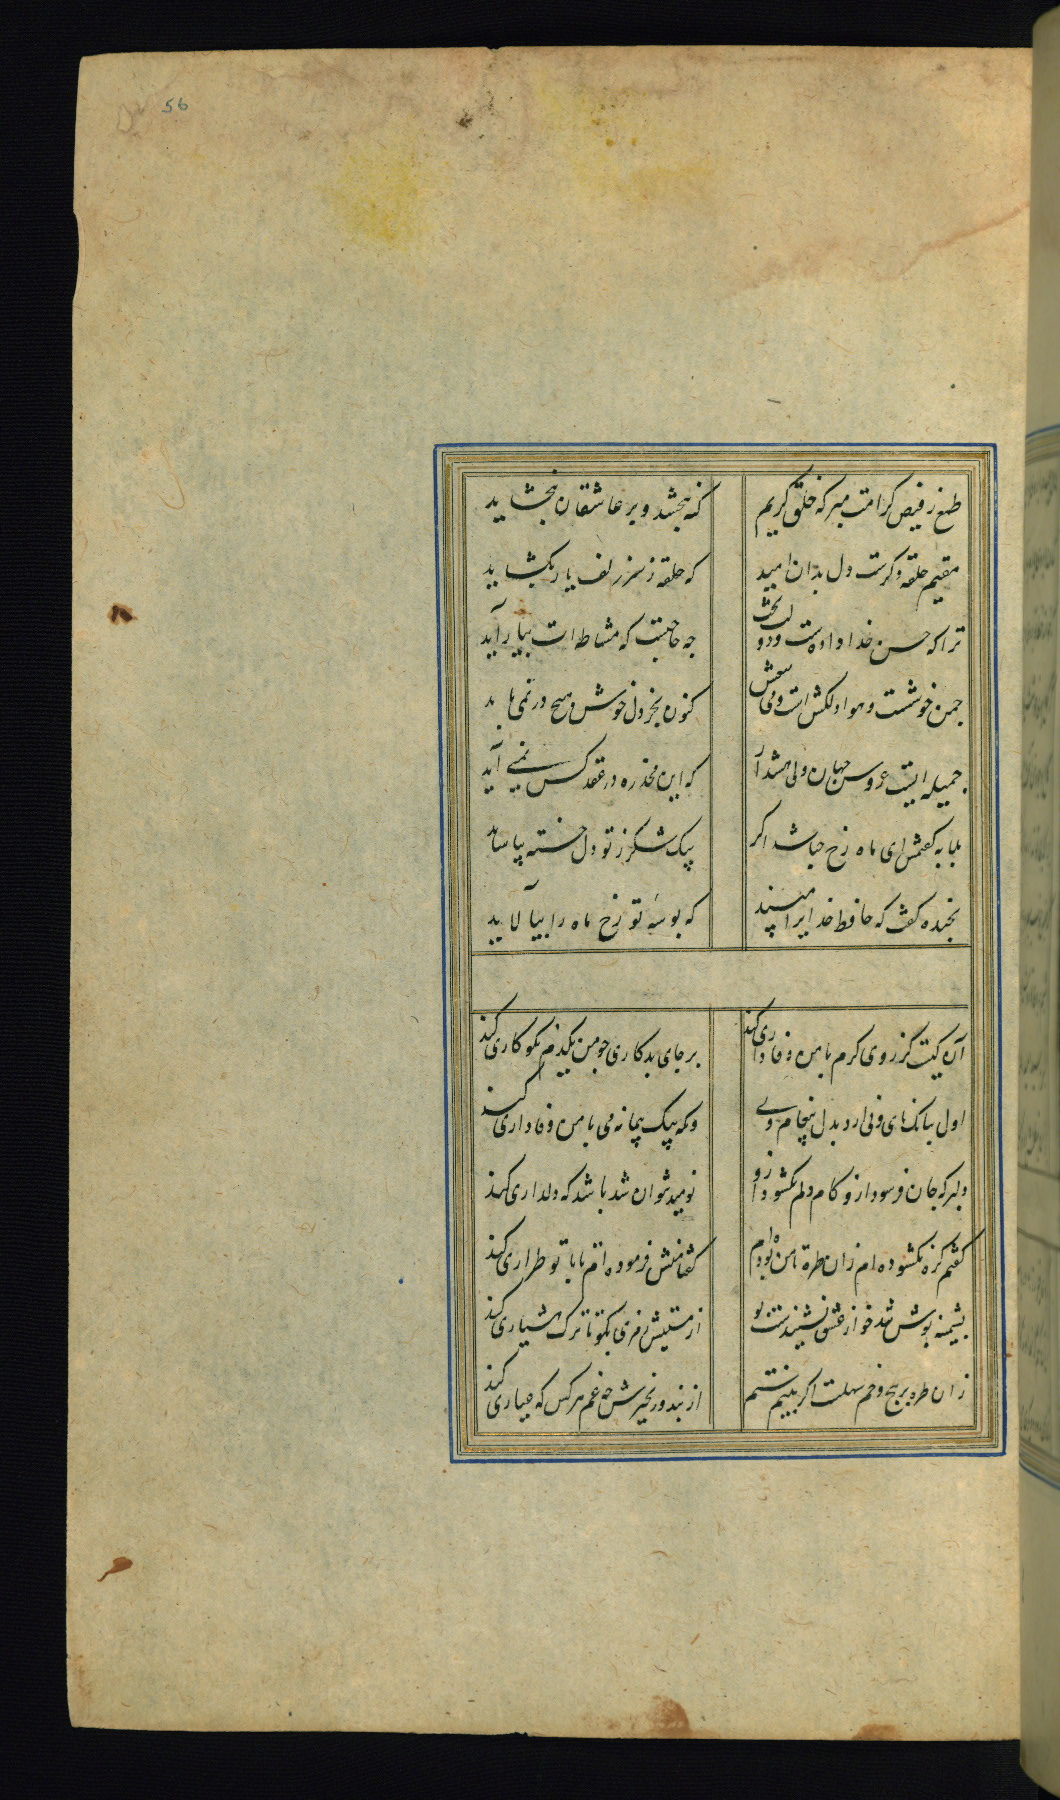 56
طمع ز فیض کرامت مبر که خلق کریم
کنه ببخشد و بر عاشقان ببخشاید
مقیم حلقه ذکرست دل بدان امید
که حلقه ز سر زلف یار بکشاید
ترا که حسن خداداده است و حجله بخت
چه حاجتست که مشاطه ات بیاراید
چمن خوشست و هوا دلکش است و می بیغش
کنون بجز دل خوش هیچ در نمی باید
جمیله ایست عروس جهان ولی هشدار
که این مخدره در عقد کس نمی آید
بلابه کفتمش ای ماه رخ چه باشد اکر
بیک شکر ز تو دل خسته بیاساید
بخنده کفت که حافظ خدایرا مپسند
که بوسه تو رخ ماه را بیآلاید
آن کیست کز روی کرم با من وفاداری کند
بر جای بدکاری چو من یکدم نکوکاری کند
اول ببانک نای و نی آرد بدل پیغام وی
وانکه بیک پیمانه می با من وفاداری کند
دلبر که جان فرسود ازو کام دلم نکشود ازو
نومید نتوان شد باشد که دلداری کند
کفتم کره نکشوده ام زان طره تا من بوده ام
کفتا منش فرموده ام تا با تو طراری کند
پشمینه پوش تندخو از عشق نشنیدست بو
از مستیش رمزی بکو تا ترک هشیاری کند
زان طره پر پیچ و خم سهلست اکر بینم ستم
از بند و زنجیرش چه غم هر کس که عیاری کند